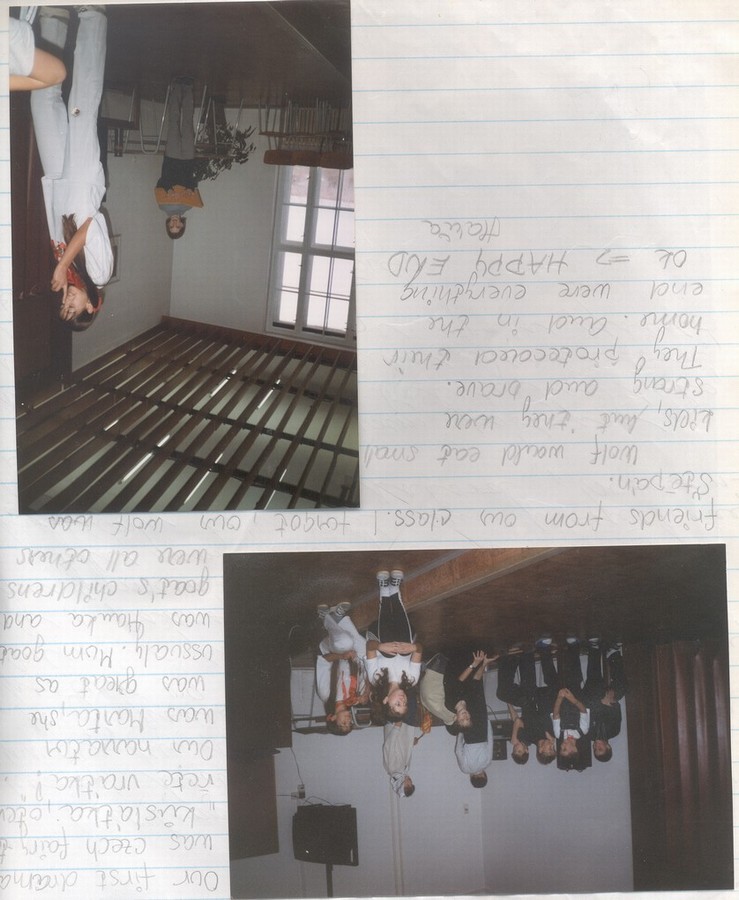 Our first drama
was czech fairy
"Kůzlátka, otev
řete vrátka!".
Our narrator
was Marta, she
was great as
ussualy. Mom goat
was Hanka and
goat's childrens
were all others
friends from our class. I forgot, our wolf was
Štěpán.
Wolf would eat small
kids, but they were
strong and brave.
They protected their
home. And in the
end were everything
OK => HAPPY END